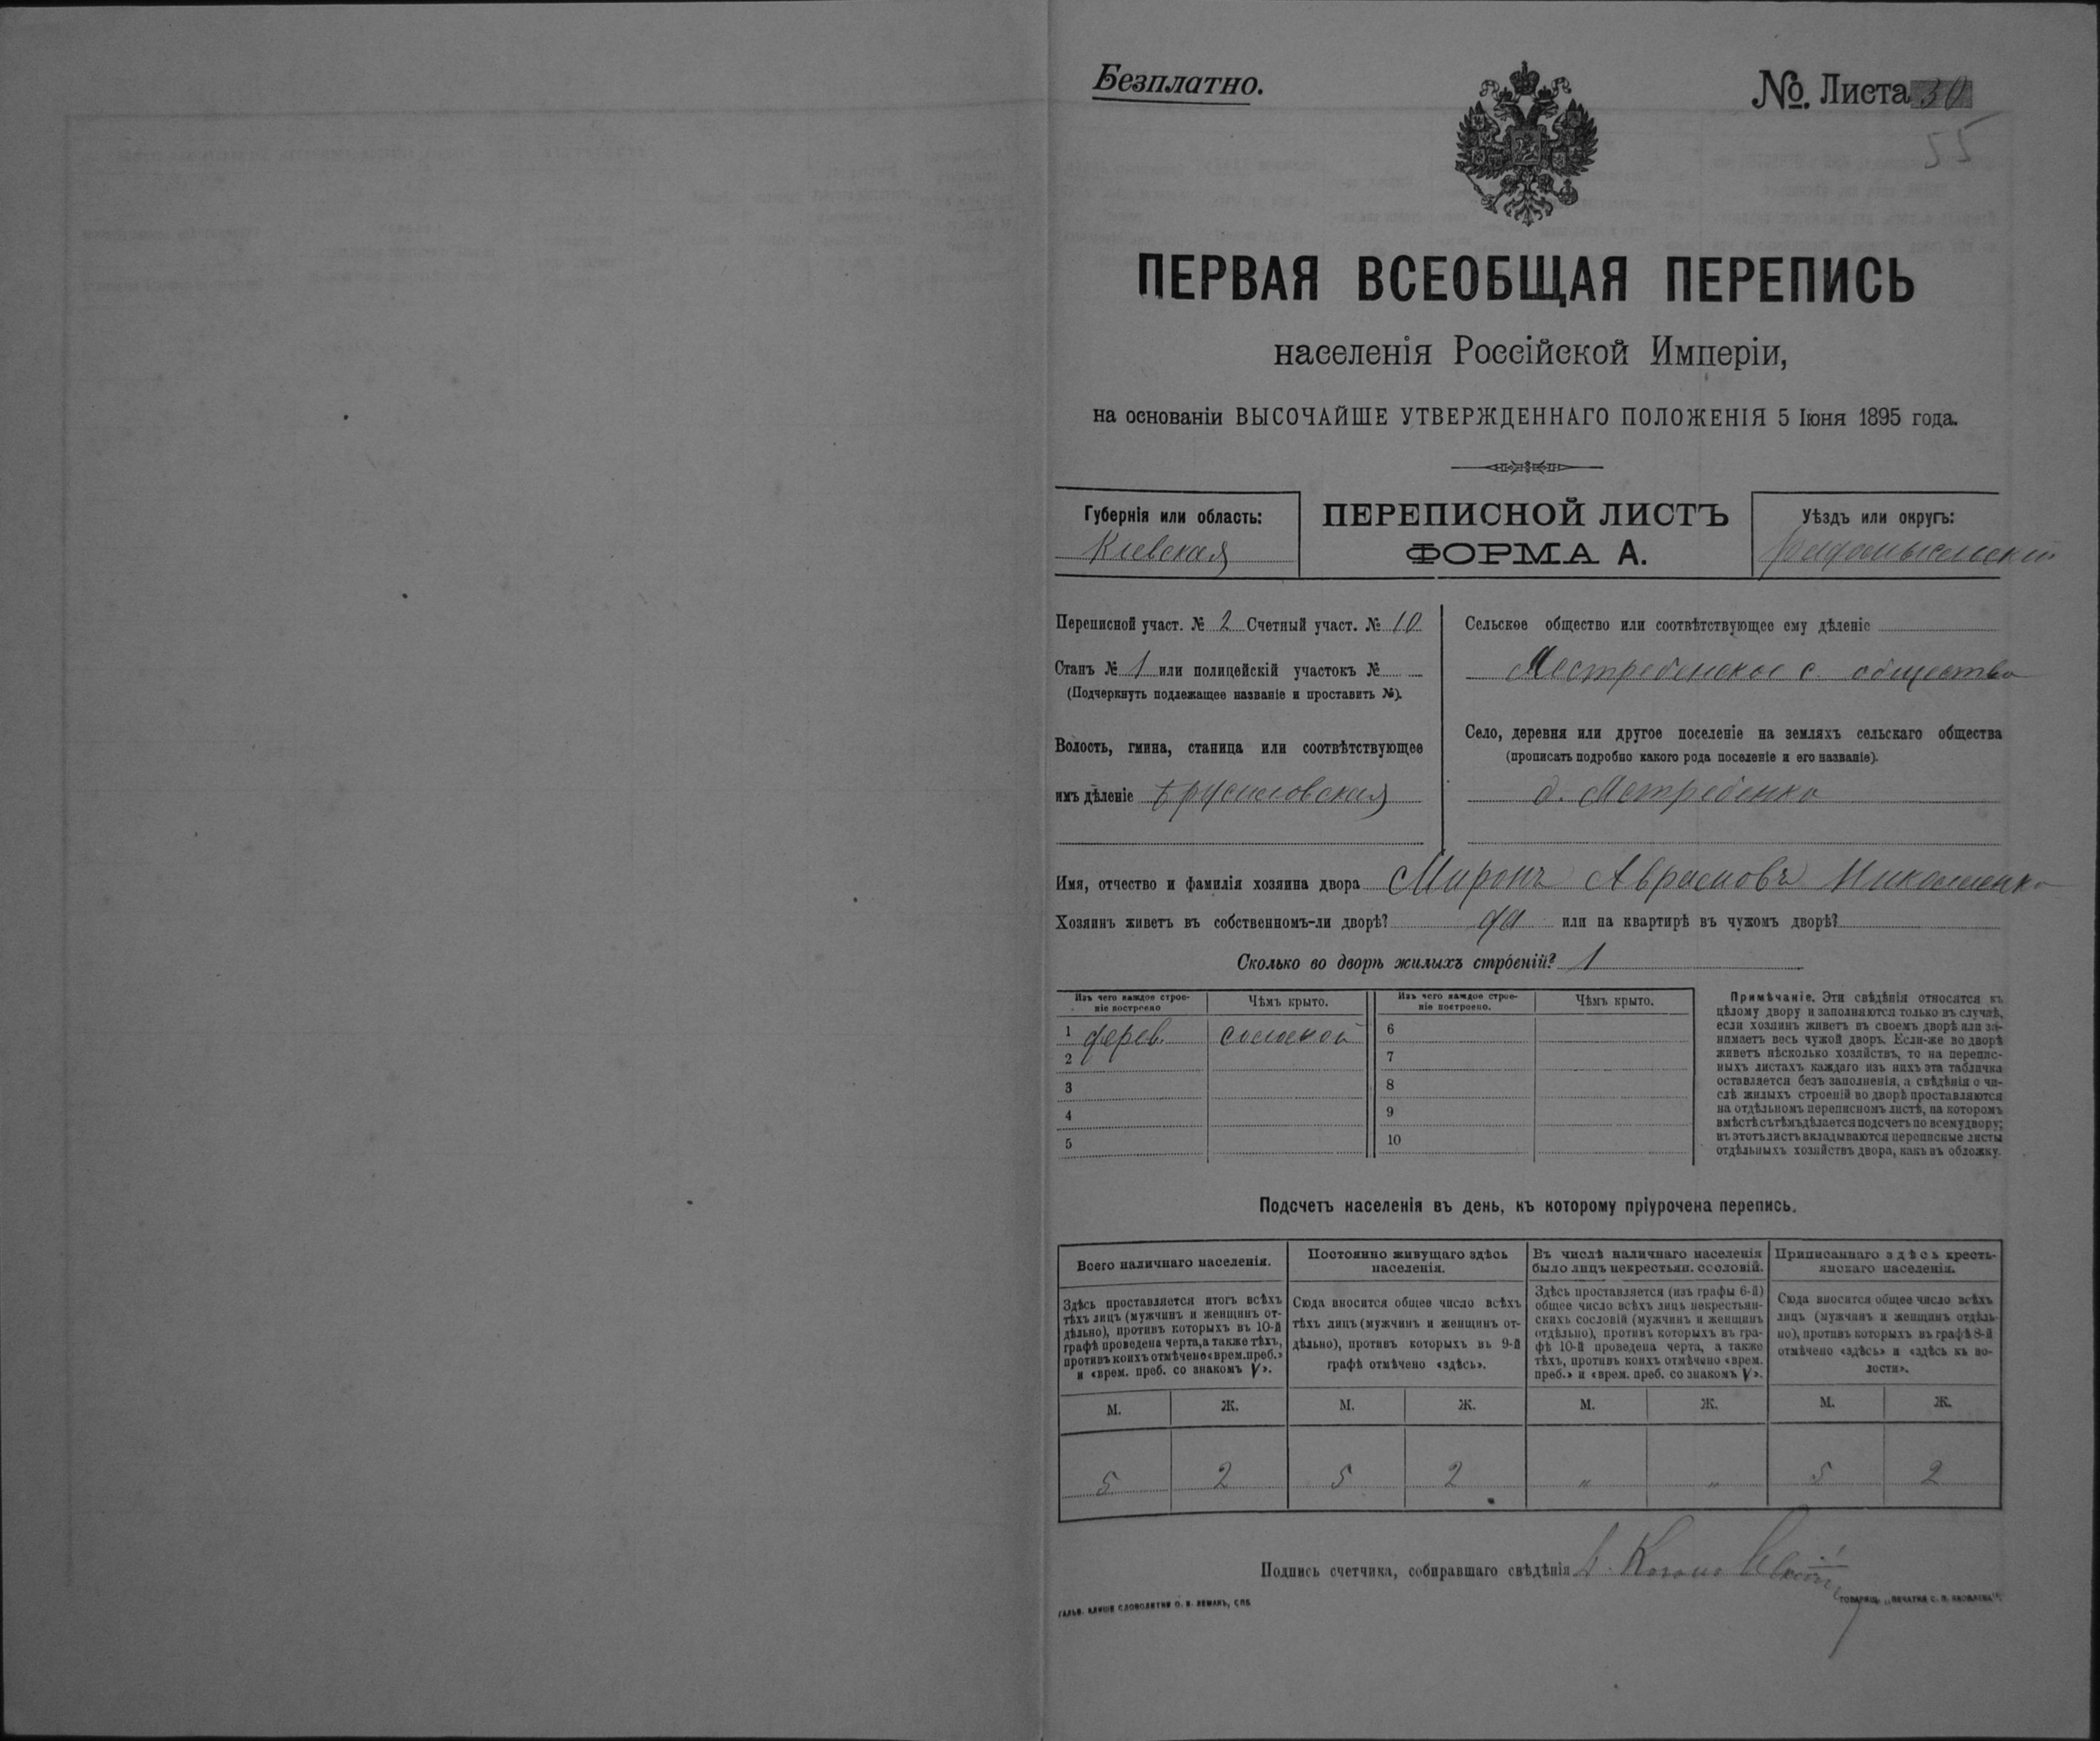 Безплатно.
№. Листа 30
55
ПЕРВАЯ ВСЕОБЩАЯ ПЕРЕПИСЬ
населенія Россійской Имперіи,
на основаніи ВЫСОЧАЙШЕ УТВЕРЖДЕННАГО ПОЛОЖЕНІЯ 5 Іюня 1895 года.
Губернія или область:
Кіевская
ПЕРЕПИСНОЙ ЛИСТЪ
ФОРМА А.
Уѣздъ или округъ:
Радомысльскій
Переписной участ. № 2 Счетный участ. № 10
Станъ № 1 или полицейскій участокъ №
(Подчеркнуть подлежащее названіе и проставить №).
Волость, гмина, станица или соотвѣтствующее
имъ дѣленіе Брусиловская
Сельское общество или соотвѣтствующее ему дѣленіе
Ястребенское с. общество
Село, деревня или другое поселеніе на земляхъ сельскаго общества
(прописать подробно какого рода поселеніе и его названіе).
д. Ястребенка
Имя, отчество и фамилія хозяина двора Миронъ Аврамовъ Николаенко
Хозяинъ живетъ въ собственномъ-ли дворѣ? да или на квартирѣ въ чужомъ дворѣ?
Сколько во дворѣ жилыхъ строеній? 1
Изъ чего каждое строе-
ніе построено
Чѣмъ крыто.
Изъ чего каждое строе-
ніе построено.
Чѣмъ крыто.
1 дерев. соломой 6
2 7
3 8
4 9
5 10
Примѣчаніе. Эти свѣдѣнія относятся къ
цѣлому двору и заполняются только въ случаѣ,
если хозяинъ живетъ въ своемъ дворѣ или за-
нимаетъ весь чужой дворъ. Если-же во дворѣ
живетъ нѣсколько хозяйствъ, то на перепис-
ныхъ листахъ каждаго изъ нихъ эта табличка
оставляется безъ заполненія, а свѣдѣнія о чи-
слѣ жилыхъ строеній во дворѣ проставляются
на отдѣльномъ переписномъ листѣ, на которомъ
вмѣстѣ съ тѣмъ дѣлается подсчетъ по всему двору;
въ этотъ листъ вкладываются переписные листы
отдѣльныхъ хозяйствъ двора, какъ въ обложку.
Подсчетъ населенія въ день, къ которому пріурочена перепись.
Всего наличнаго населенія.
Здѣсь проставляется итогъ всѣхъ
тѣхъ лицъ (мужчинъ и женщинъ от-
дѣльно), противъ которыхъ въ 10-й
графѣ проведена черта, а также тѣхъ,
противъ коихъ отмѣчено «врем. преб.»
и «врем. преб. со знакомъ V».
Постоянно живущаго здѣсь
населенія.
Сюда вносится общее число всѣхъ
тѣхъ лицъ (мужчинъ и женщинъ от-
дѣльно), противъ которыхъ въ 9-й
графѣ отмѣчено «здѣсь».
Въ числѣ наличнаго населенія
было лицъ некрестьян. сословій.
Здѣсь проставляется (изъ графы 6-й)
общее число всѣхъ лицъ некрестьян-
скихъ сословій (мужчинъ и женщинъ
отдѣльно), противъ которыхъ въ гра-
фѣ 10-й проведена черта, а также
тѣхъ, противъ коихъ отмѣчено «врем.
преб.» и «врем. преб. со знакомъ V».
Приписаннаго здѣсь кресть-
янскаго населенія.
Сюда вносится общее число всѣхъ
лицъ (мужчинъ и женщинъ отдѣль-
но), противъ которыхъ въ графѣ 8-й
отмѣчено «здѣсь» и «здѣсь къ во-
лости».
М. Ж. М. Ж. М. Ж. М. Ж.
5 2 5 2 „ „ 5 2
Подпись счетчика, собиравшаго свѣдѣнія
ГАЛЬВ. КЛИШЕ СЛОВОЛИТНИ О. И. ЛЕМАНЪ, СПБ.
ТОВАРИЩ. „ПЕЧАТНЯ С. П. ЯКОВЛЕВА".